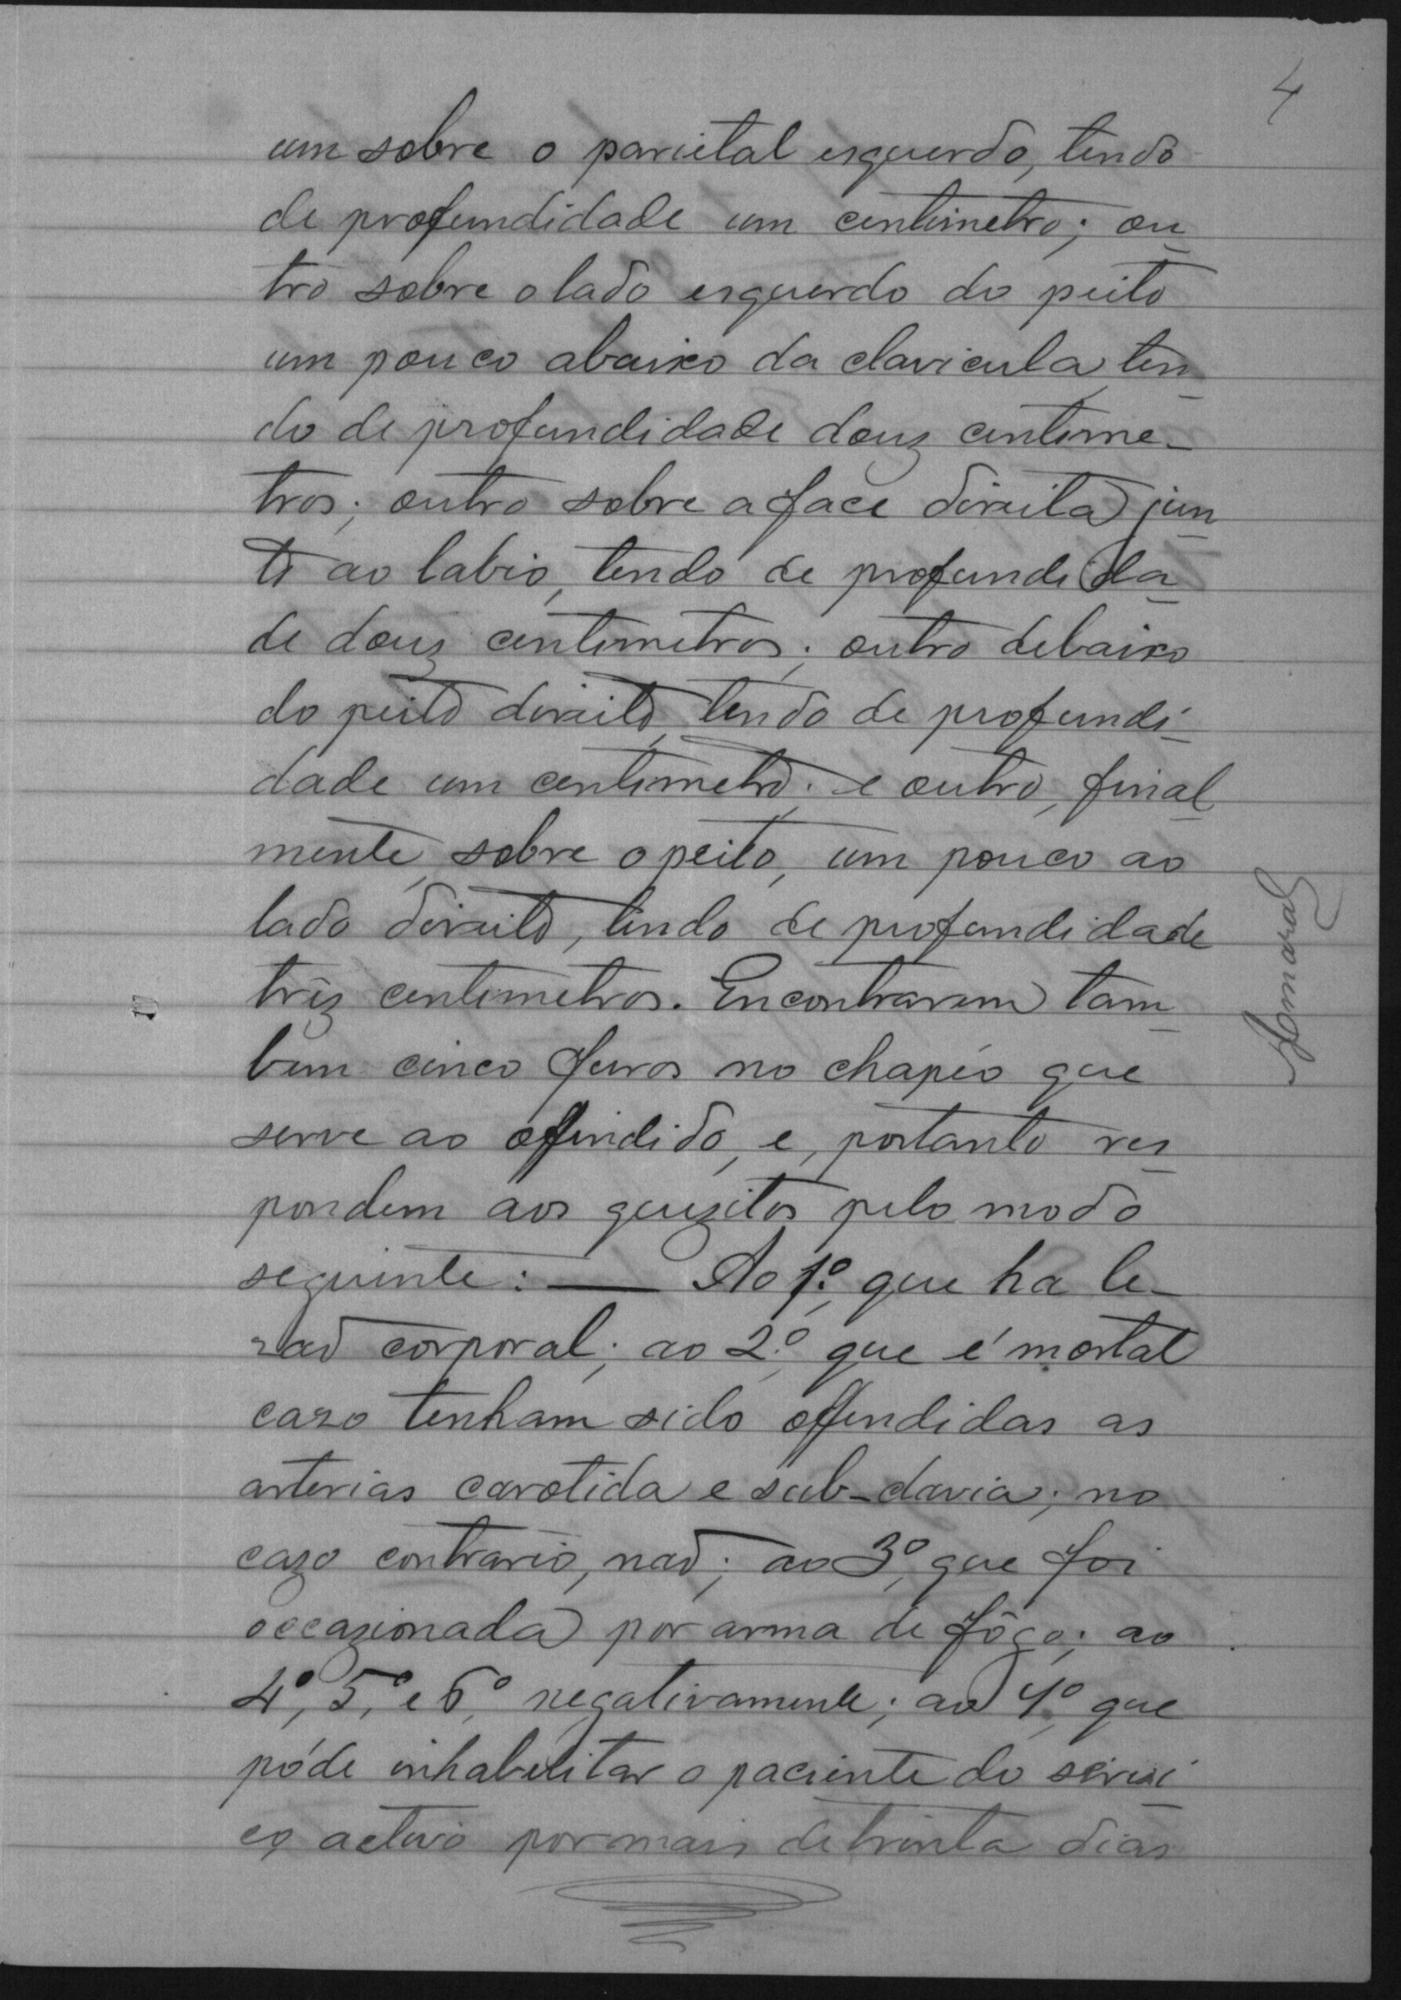 4
um sobre o parietal esquerdo, tendo
de profundidade um centimetro; ou
tro sobre o lado esquerdo do peito
um pouco abaixo da clavicula, ten
do de profundidade douz centime-
tros; outro sobre a face direita jun
to ao labio, tendo de profundida
de douz centimetros; outro debaixo
do peito direito, tendo de profundi
dade um centimetro; e outro, final
mente, sobre o peito, um pouco ao
lado direito, tendo de profundidade
trêz centimetros. Encontraram tam
bem cinco furos no chapéo que
serve ao offendido, e, portanto res
pondem aos quezitos pelo modo
seguinte: — Ao 1º, que ha le-
zaõ corporal; ao 2º, que é mortal
cazo tenham sido offendidas as
arterias carotida e sub-clavia; no
cazo contrario, naõ; ao 3º, que foi
occazionada por arma de fôgo; ao
4º, 5º, e 6º, negativamente; ao 7º, que
póde inhabilitar o paciente do servi
ço activo por mais de trinta dias
Amaral